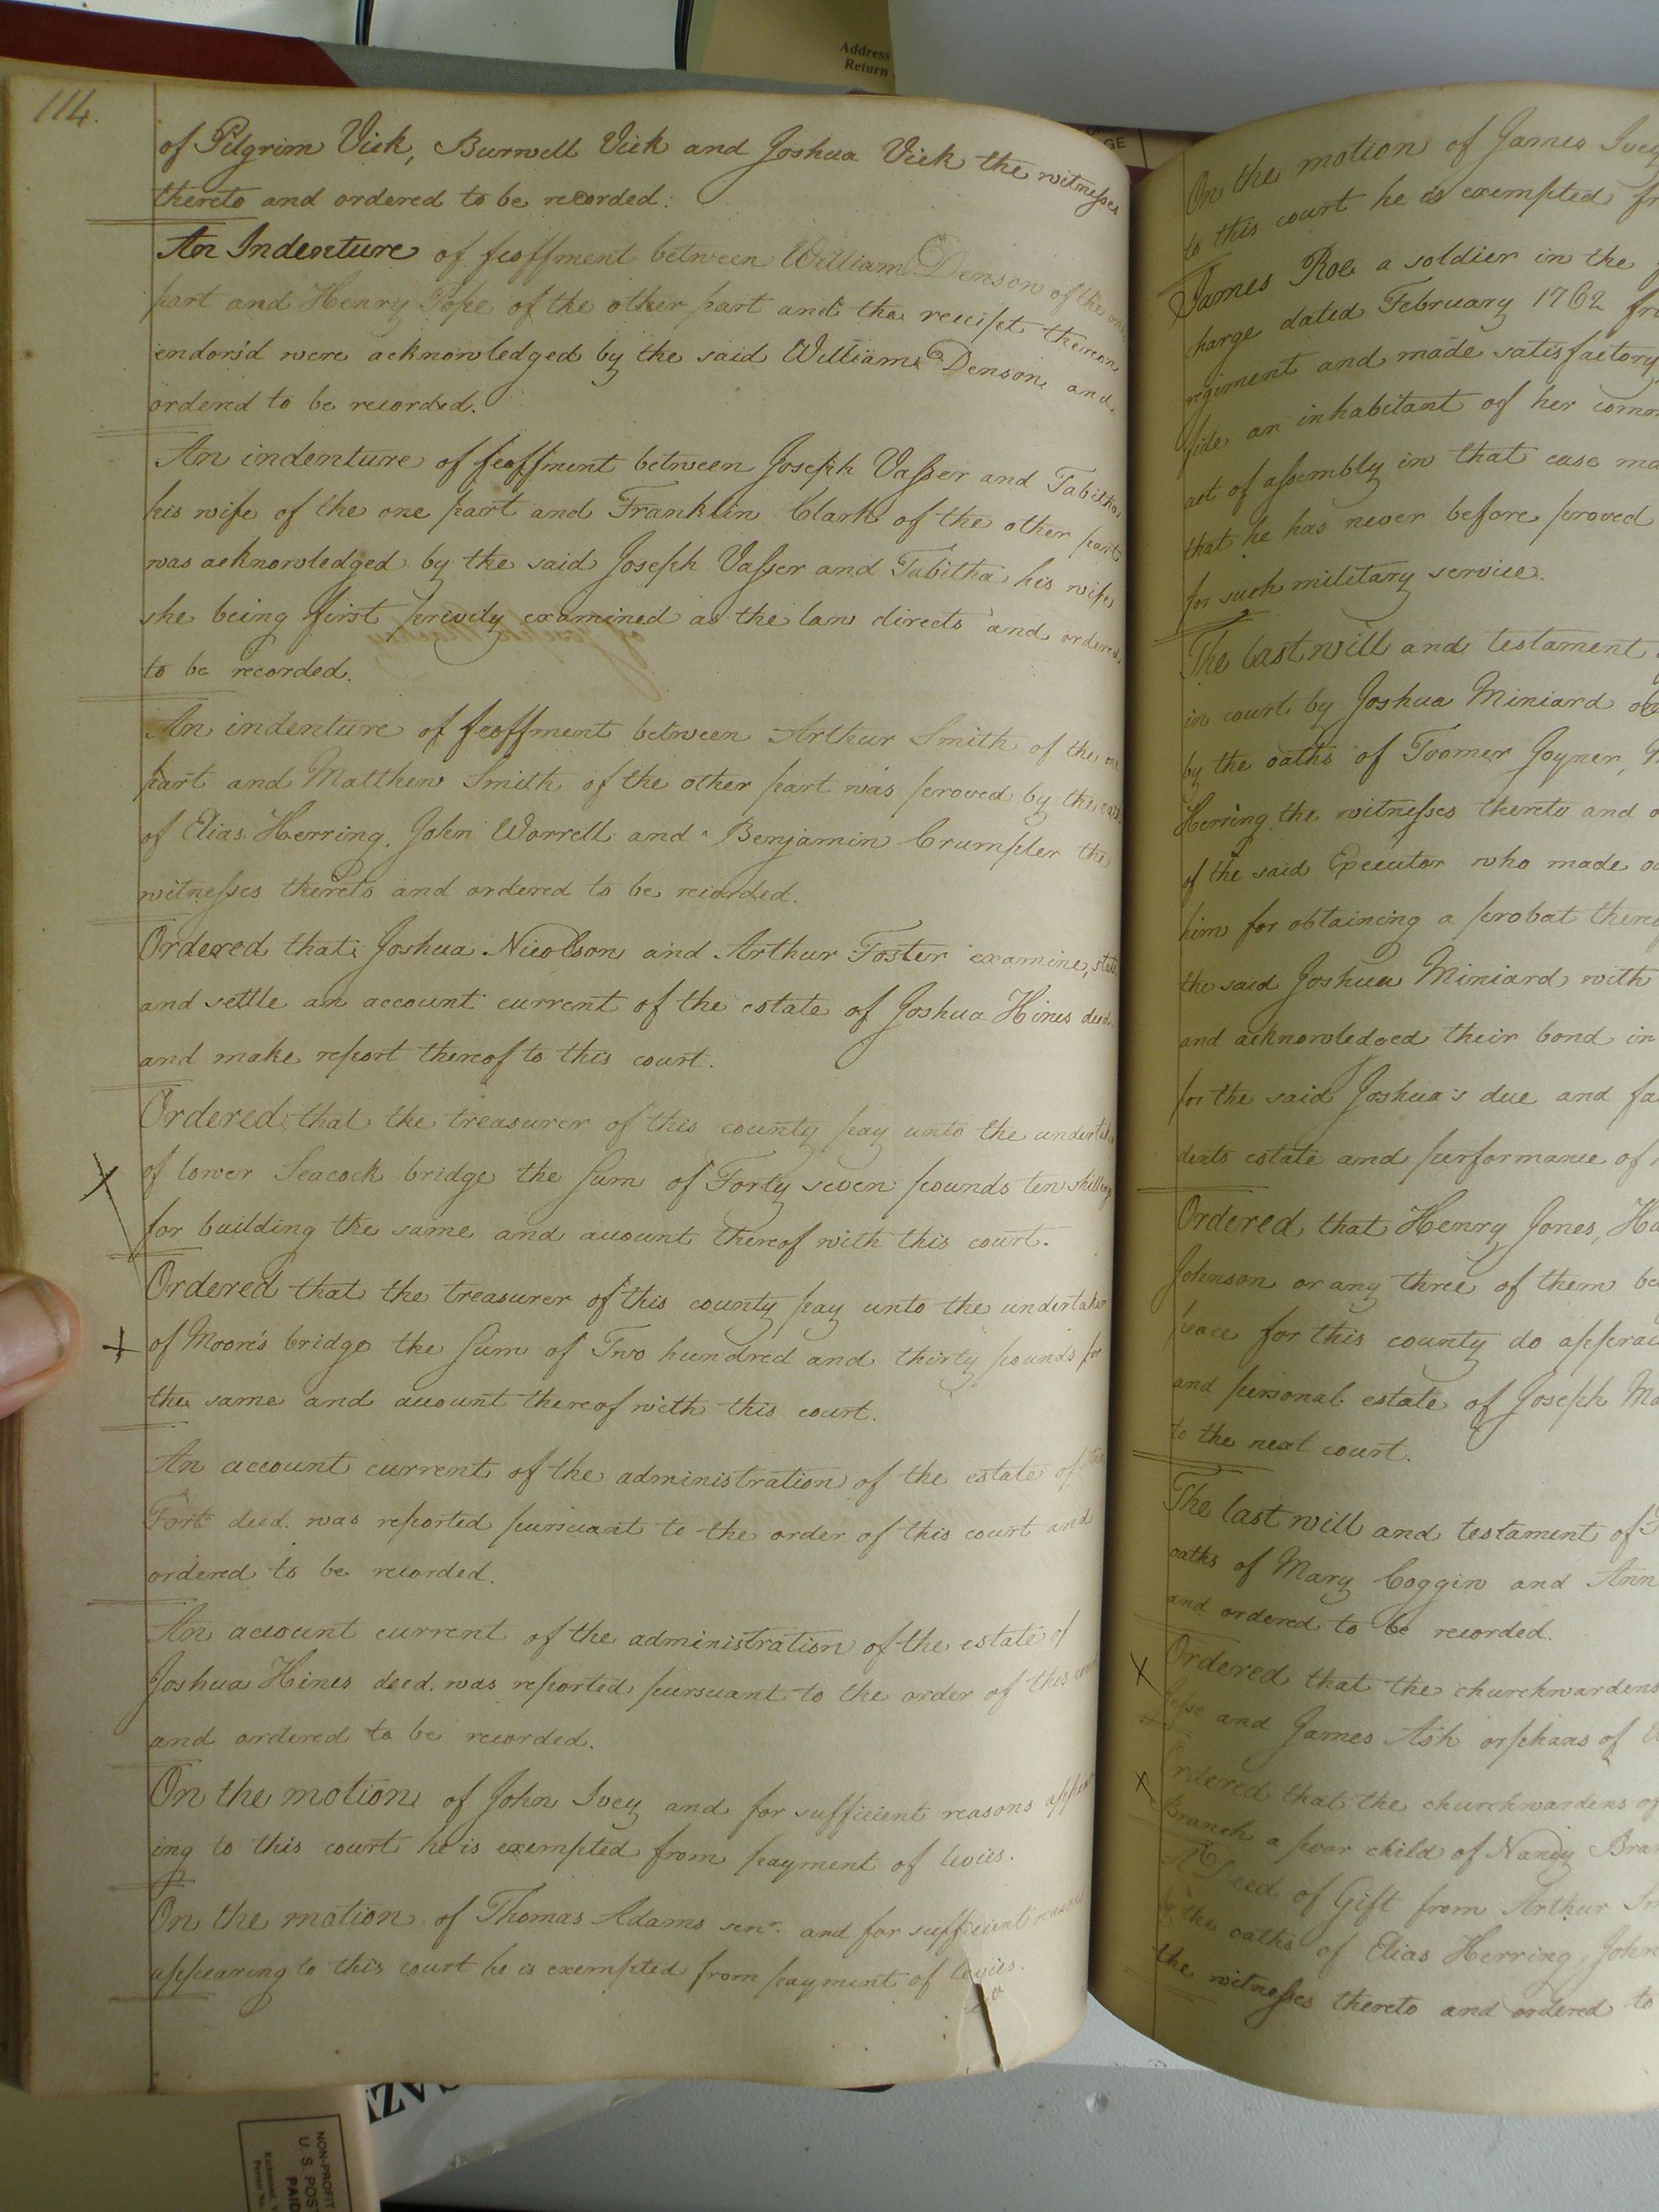 Address
Return
GE
114.
of Pilgrim Vick, Burwell Vick and Joshua Vick the witnesses
thereto and ordered to be recorded.
An Indenture of feoffment between William Denson of the one
part and Henry Pope of the other part and the receipt thereon
endors'd were acknowledged by the said William Denson and
ordered to be recorded.
An indenture of feoffment between Joseph Vasser and Tabitha
his wife of the one part and Franklin Clark of the other part
was acknowledged by the said Joseph Vasser and Tabitha his wife
she being first privily examined as the law directs and ordered
to be recorded.
An indenture of feoffment between Arthur Smith of the one
part and Matthew Smith of the other part was proved by the oaths
of Elias Herring, John Worrell and Benjamin Crumpler the
witnesses thereto and ordered to be recorded.
Ordered that Joshua Nicolson and Arthur Foster examine, state
and settle an account current of the estate of Joshua Hines decd.
and make report thereof to this court.
Ordered that the treasurer of this county pay unto the undertaker
of lower Seacock bridge the Sum of Forty seven pounds ten shillings
for building the same and account thereof with this court.
Ordered that the treasurer of this county pay unto the undertaker
of Moore's bridge the Sum of Two hundred and thirty pounds for
the same and account thereof with this court.
An account current of the administration of the estate of
Fort decd. was reported pursuant to the order of this court and
ordered to be recorded.
An account current of the administration of the estate of
Joshua Hines decd. was reported pursuant to the order of this court
and ordered to be recorded.
On the motion of John Ivey and for sufficient reasons appear
ing to this court he is exempted from payment of levies.
On the motion of Thomas Adams senr. and for sufficient reasons
appearing to this court he is exempted from payment of levies.
On the motion of James Ivey
to this court he is exempted
James Roe a soldier in the
charge dated February 1762
regiment and made satisfactory
side an inhabitant of her
act of assembly in that case
that he has never before proved
for such military service.
The last will and testament
in court by Joshua Miniard
by the oaths of Toomer Joyner,
Herring the witnesses thereto and
of the said Executor who made
him for obtaining a probat
the said Joshua Miniard with
and acknowledged their bond in
for the said Joshua's due and
dents estate and performance of
Ordered that Henry Jones,
Johnson or any three of them
peace for this county do
and personal estate of Joseph
to the next court.
The last will and testament of
oaths of Mary Coggin and Ann
and ordered to be recorded.
Ordered that the churchwardens
Jesse and James Ash orphans of
Ordered that the churchwardens of
Branch a poor child of Nancy
A Deed of Gift from Arthur
by the oaths of Elias Herring, John
the witnesses thereto and ordered to
NON-PROFIT
U.S. POS
PAID